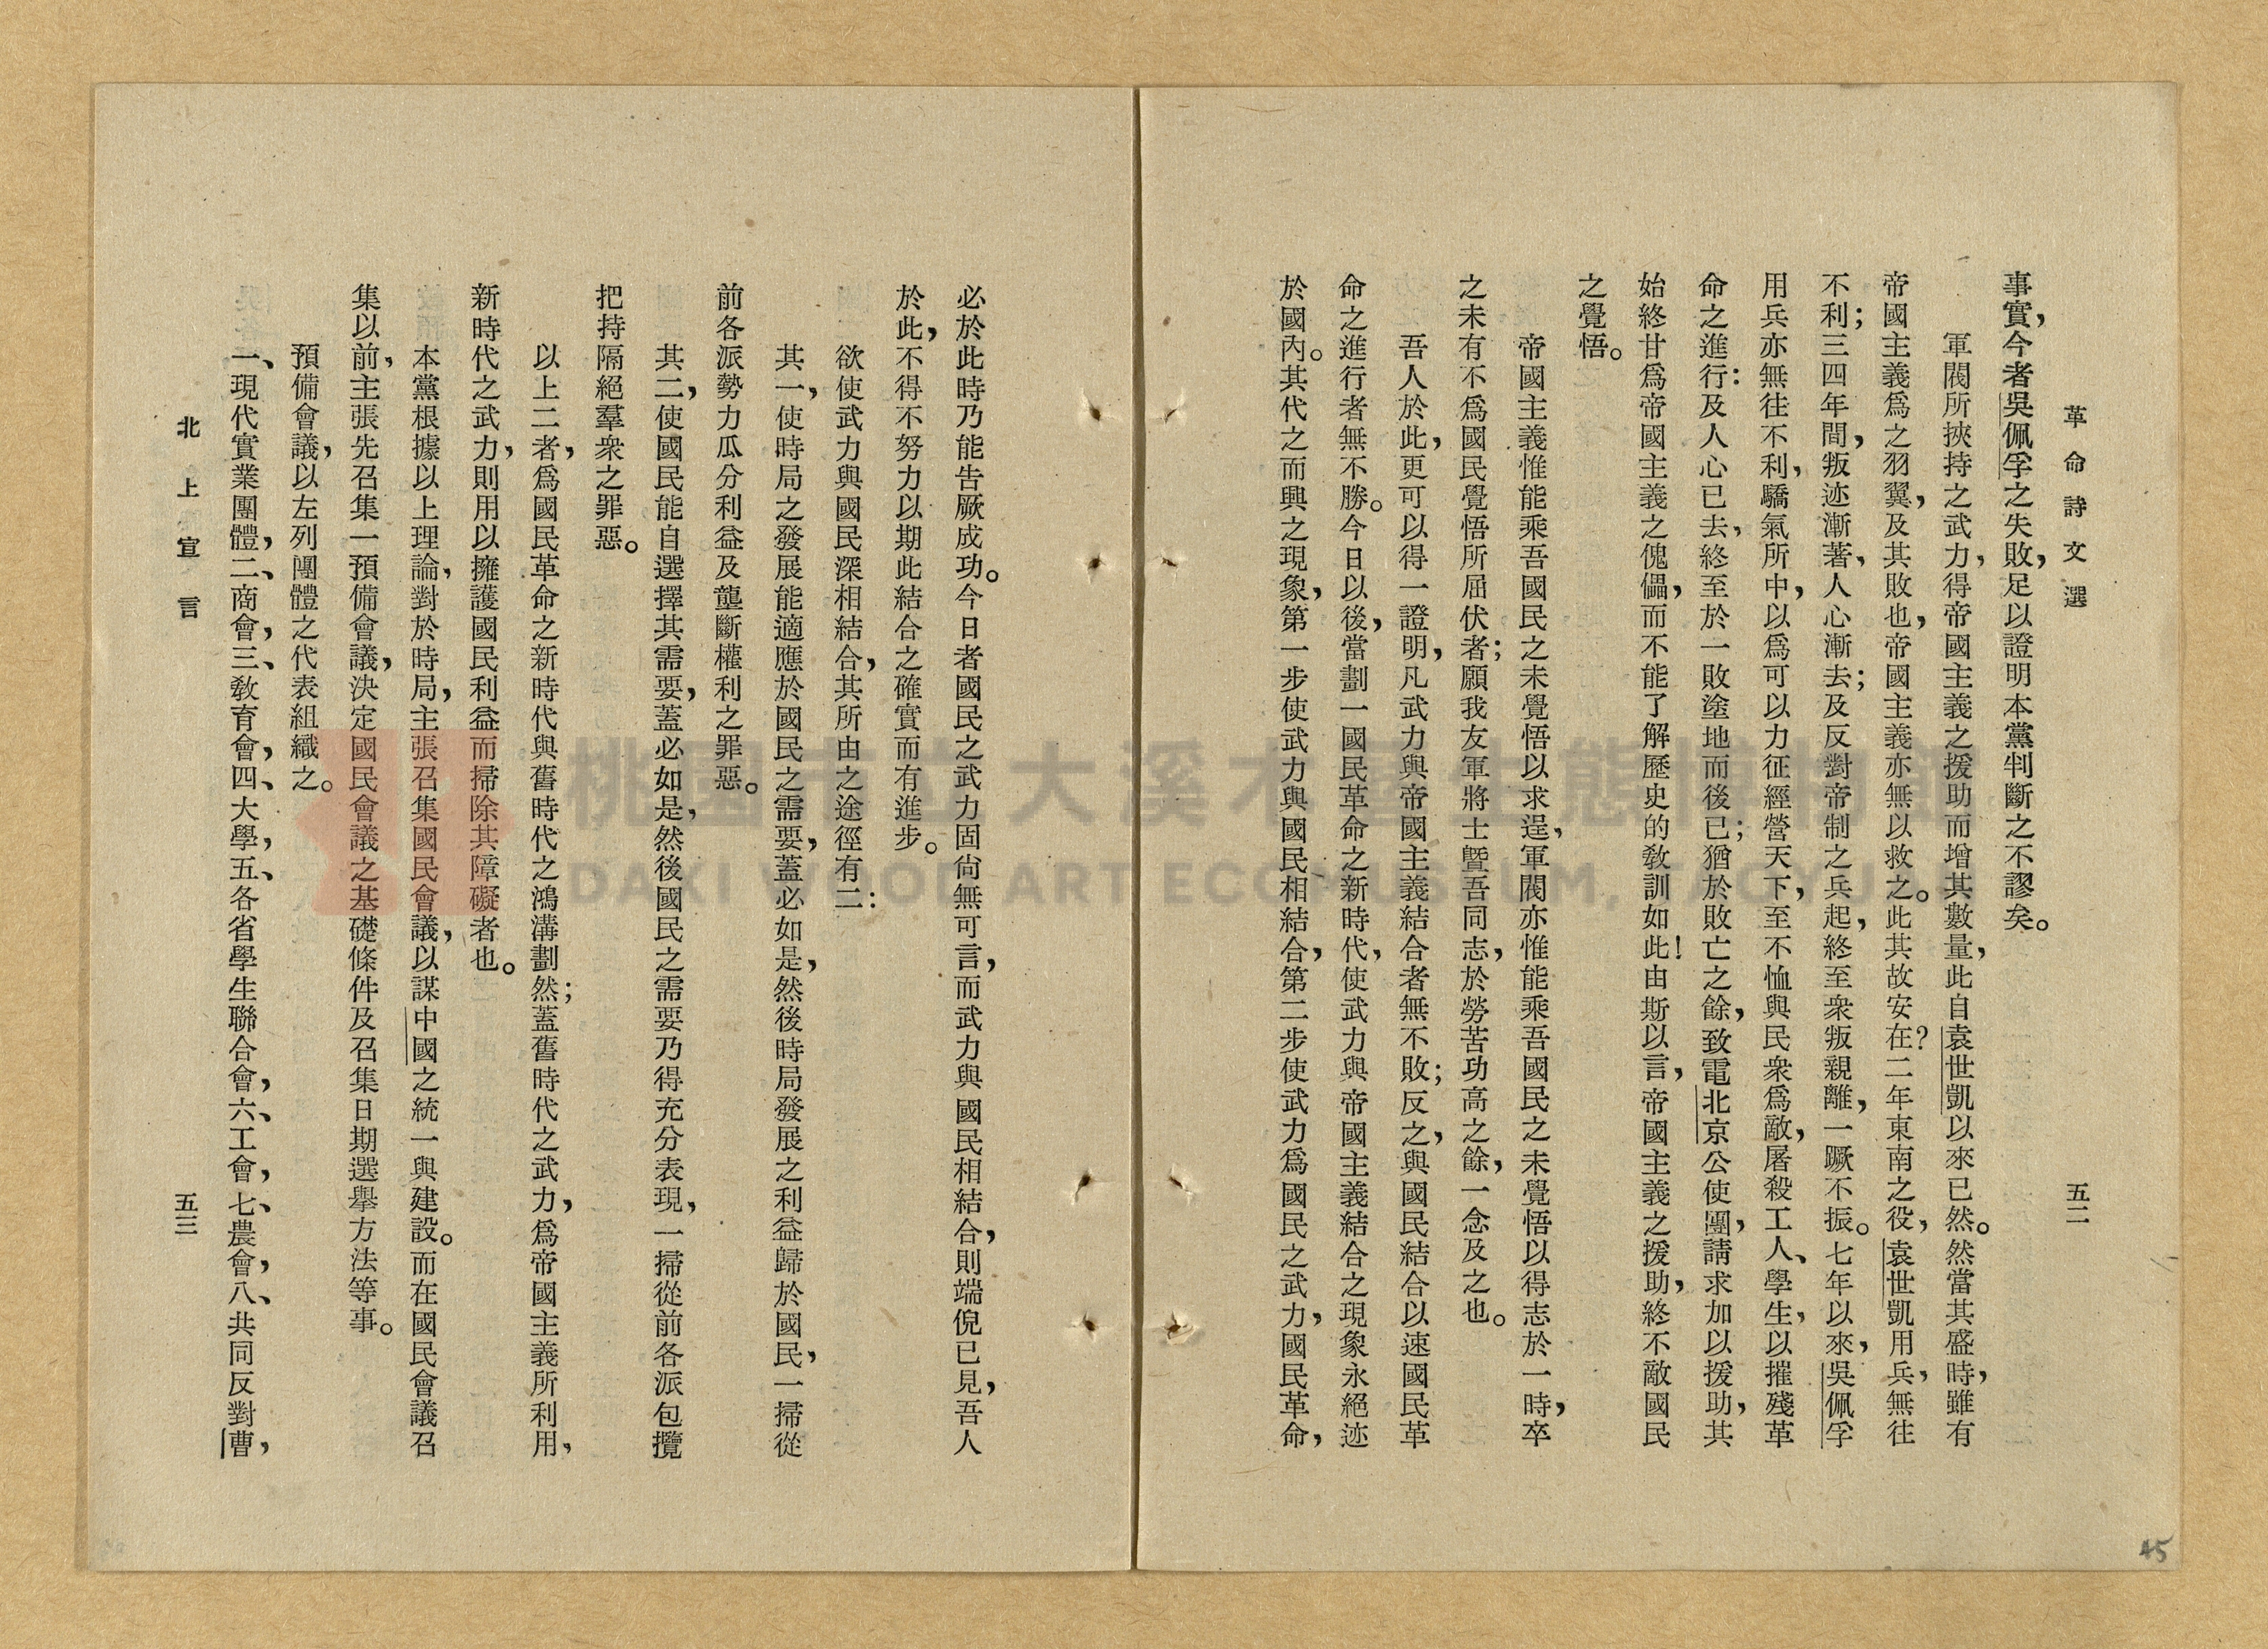 革命詩文選
五二
事實，今者吳佩孚之失敗，足以證明本黨判斷之不謬矣。
軍閥所挾持之武力，得帝國主義之援助而增其數量，此自袁世凱以來已然。然當其盛時，雖有
帝國主義爲之羽翼，及其敗也，帝國主義亦無以救之。此其故安在？二年東南之役，袁世凱用兵，無往
不利；三四年間，叛迹漸著，人心漸去；及反對帝制之兵起，終至衆叛親離，一蹶不振。七年以來，吳佩孚
用兵亦無往不利，驕氣所中，以爲可以力征經營天下，至不恤與民衆爲敵，屠殺工人、學生，以摧殘革
命之進行：及人心已去，終至於一敗塗地而後已；猶於敗亡之餘，致電北京公使團，請求加以援助，其
始終甘爲帝國主義之傀儡，而不能了解歷史的敎訓如此！由斯以言，帝國主義之援助，終不敵國民
之覺悟。
帝國主義惟能乘吾國民之未覺悟以求逞，軍閥亦惟能乘吾國民之未覺悟以得志於一時，卒
之未有不爲國民覺悟所屈伏者；願我友軍將士曁吾同志，於勞苦功高之餘，一念及之也。
吾人於此，更可以得一證明，凡武力與帝國主義結合者無不敗；反之，與國民結合以速國民革
命之進行者無不勝。今日以後，當劃一國民革命之新時代，使武力與帝國主義結合之現象永絕迹
於國內。其代之而興之現象，第一步使武力與國民相結合，第二步使武力爲國民之武力，國民革命，
必於此時乃能告厥成功。今日者國民之武力固尙無可言，而武力與國民相結合，則端倪已見，吾人
於此，不得不努力以期此結合之確實而有進步。
欲使武力與國民深相結合，其所由之途徑有二：
其一，使時局之發展能適應於國民之需要，蓋必如是，然後時局發展之利益歸於國民，一掃從
前各派勢力瓜分利益及壟斷權利之罪惡。
其二，使國民能自選擇其需要，蓋必如是，然後國民之需要乃得充分表現，一掃從前各派包攬
把持隔絕羣衆之罪惡。
以上二者，爲國民革命之新時代與舊時代之鴻溝劃然；蓋舊時代之武力，爲帝國主義所利用，
新時代之武力，則用以擁護國民利益而掃除其障礙者也。
本黨根據以上理論，對於時局，主張召集國民會議，以謀中國之統一與建設。而在國民會議召
集以前，主張先召集一預備會議，決定國民會議之基礎條件及召集日期選擧方法等事。
預備會議，以左列團體之代表組織之。
一、現代實業團體，二、商會，三、敎育會，四、大學，五、各省學生聯合會，六、工會，七、農會，八、共同反對曹，
北上宣言
五三
45
桃園市立大溪木藝生態博物館
DAXI WOOD ART ECOMUSEUM, TAOYUAN